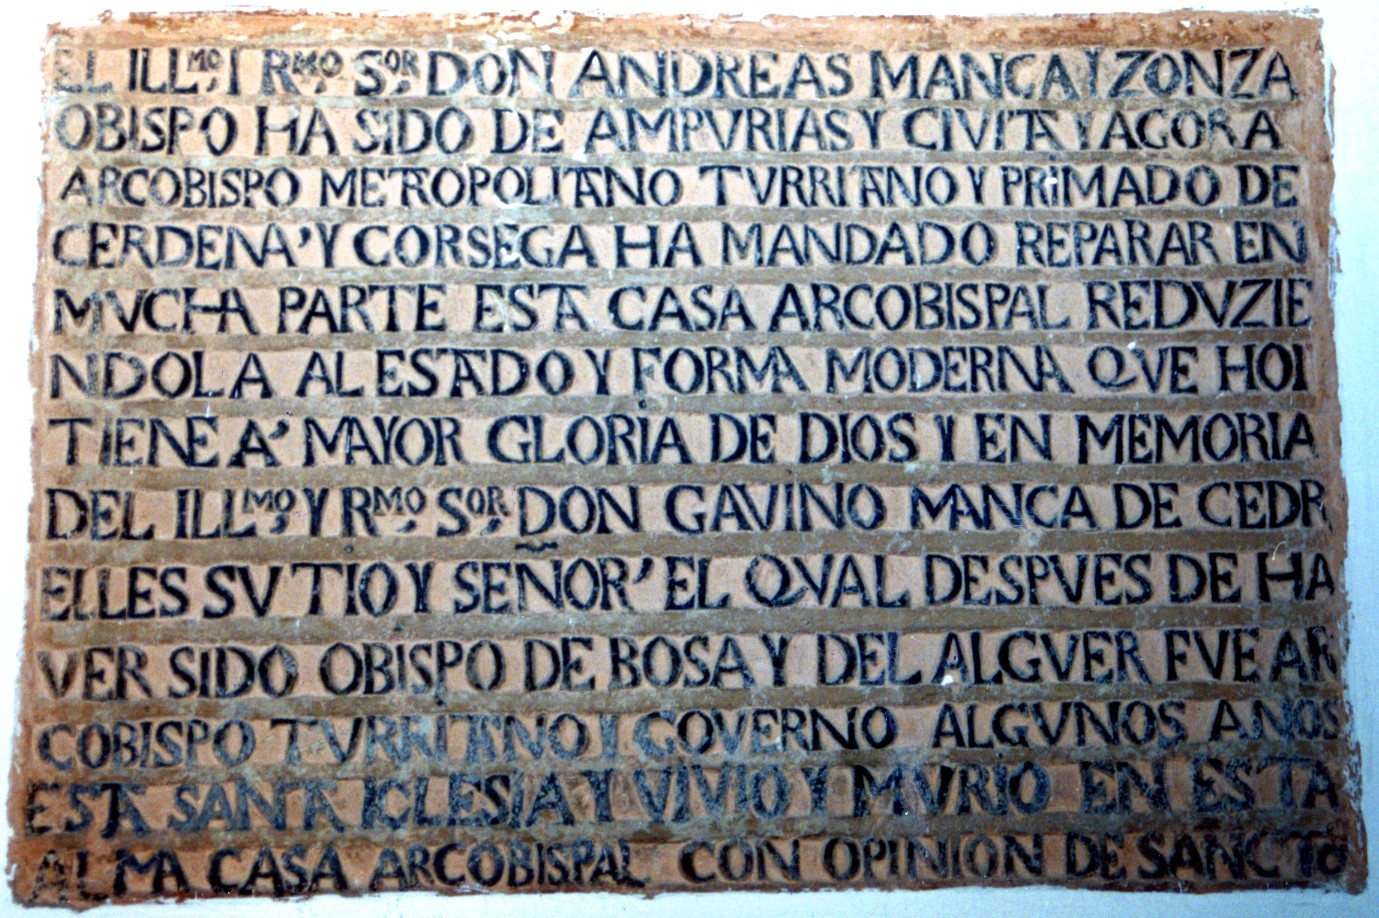 EL ILLMO, I RMO, SOR, DON ANDREAS MANCA Y ZONZA
OBISPO HA SIDO DE AMPVRIAS Y CIVITA Y AGORA
ARCOBISPO METROPOLITANO TVRRITANO Y PRIMADO DE
CERDENA' Y CORSEGA HA MANDADO REPARAR EN
MVCHA PARTE ESTA CASA ARCOBISPAL REDVZIE
NDOLA AL ESTADO Y FORMA MODERNA QVE HOI
TIENE A' MAYOR GLORIA DE DIOS Y EN MEMORIA
DEL ILLMO, Y RMO, SOR, DON GAVINO MANCA DE CEDR
ELLES SV TIO Y SEÑOR' EL QVAL DESPVES DE HA
VER SIDO OBISPO DE BOSA Y DEL ALGVER FVE AR
COBISPO TVRRITANO Y GOVERNO ALGVNOS ANOS
ESTA SANTA IGLESIA Y VIVIO Y MVRIO EN ESTA
ALMA CASA ARCOBISPAL CON OPINION DE SANCTO